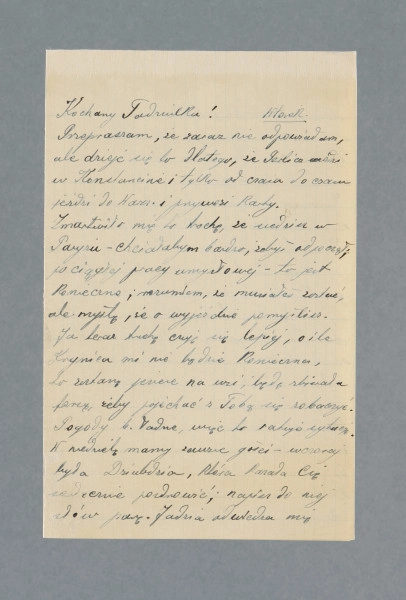 Kochany Tadziulku! Wtorek.
Przepraszam, że zaraz nie odpowiadam,
ale dzieje się to dlatego, że
w Konstancinie i tylko od czasu do czasu
jeździ do Warsz. i przywozi karty.
Zmartwiło mię to trochę, że siedzisz w
Paryżu - chciałabym bardzo, żebyś odpoczął
po ciągłej pracy umysłowej - to jest
konieczne, i rozumiem, że musiałeś zostać,
ale myślę, że o wyjeździe pomyślisz.
Ja teraz trochę czuję się lepiej, o ile
Krynica mi nie będzie konieczna,
to zostanę jeszcze na wsi, będę zbierała
forsę, żeby pojechać z Tobą się zobaczyć.
Pogody b. ładne, więc to
W niedzielę mamy zawsze gości - wczoraj
była Dziudzia, która kazała Cię
serdecznie pozdrowić; napisz do niej
słów parę. Jadzia odwiedza mię